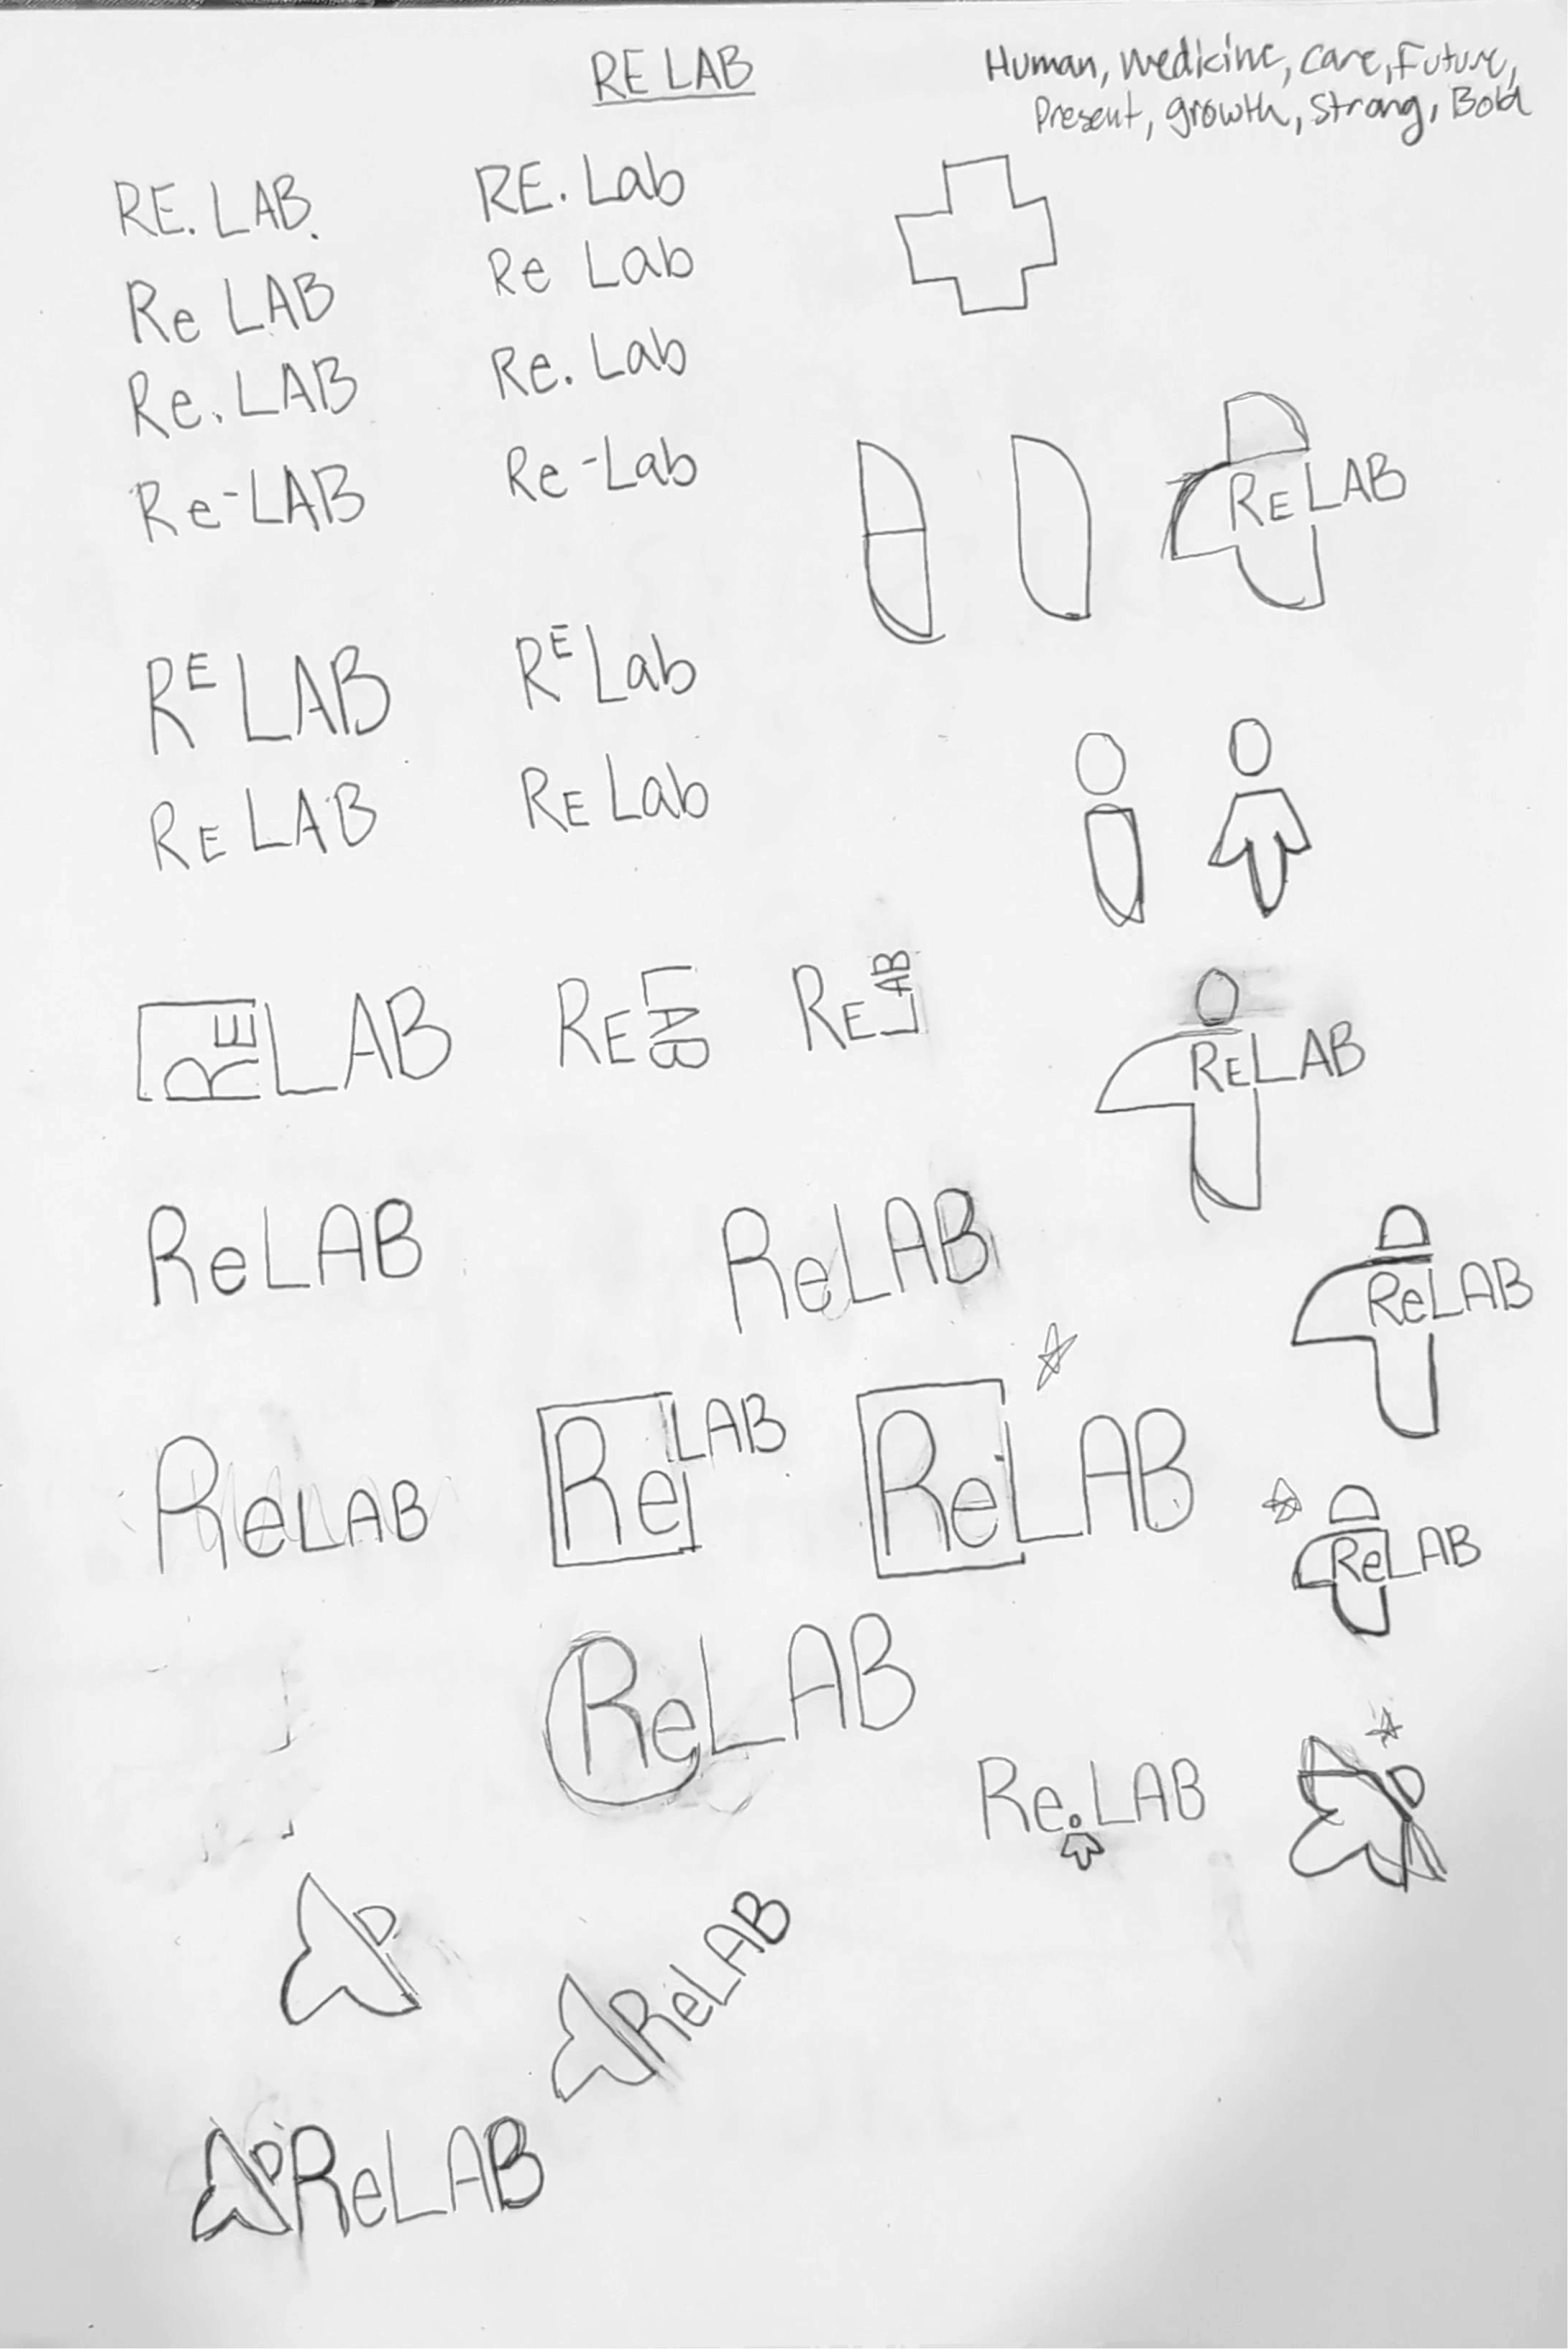 RE LAB
Human, Medicine, Care, Future,
Present, growth, Strong, Bold
RE. LAB.
RE. Lab
Re LAB
Re Lab
Re. LAB
Re. Lab
Re-LAB
Re-Lab
RE LAB
RE LAB
RE Lab
RE LAB
RE Lab
RE LAB
RE LAB
RE LAB
RE LAB
ReLAB
ReLAB
ReLAB
ReLAB
Re LAB
ReLAB
ReLAB
ReLAB
Re.LAB
ReLAB
ReLAB